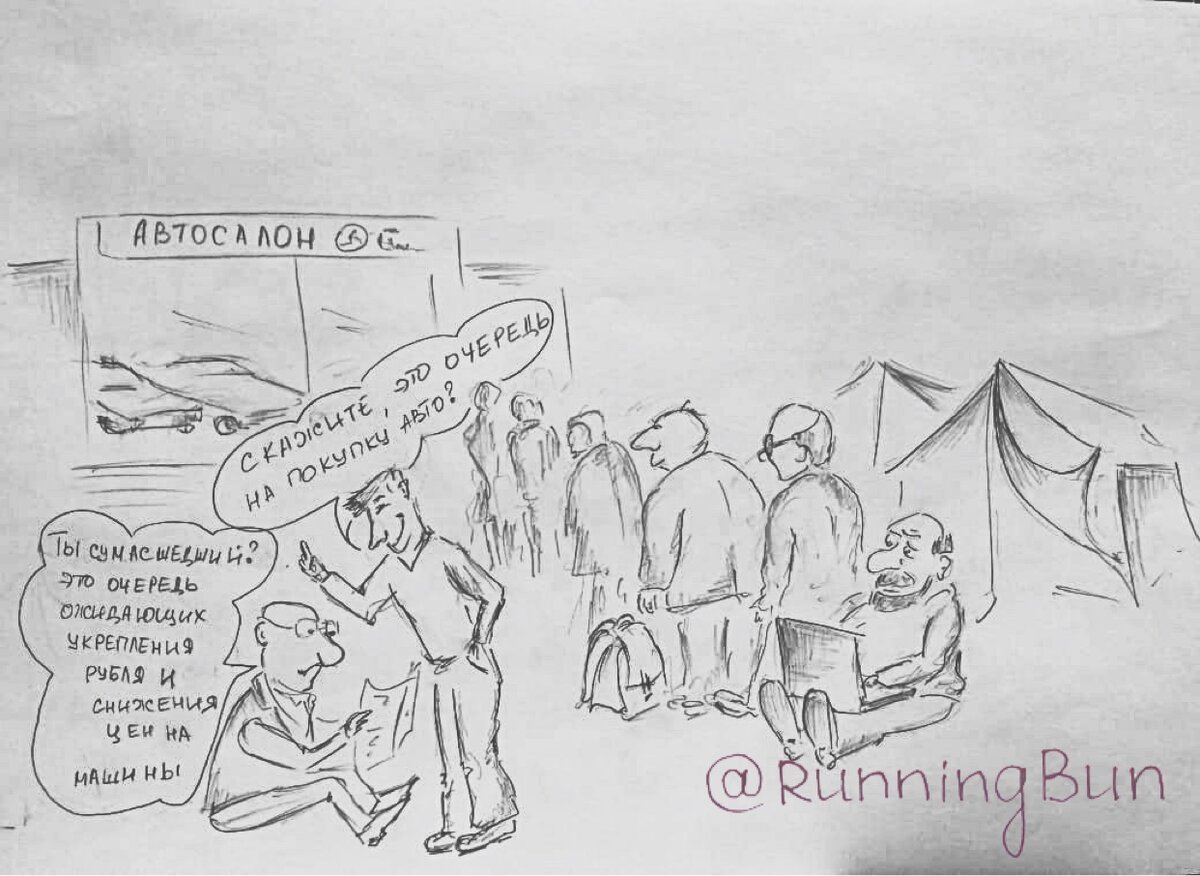 АВТОСАЛОН
СКАЖИТЕ, ЭТО ОЧЕРЕДЬ
НА ПОКУПКУ АВТО?
ТЫ СУМАСШЕДШИЙ?
ЭТО ОЧЕРЕДЬ
ОЖИДАЮЩИХ
УКРЕПЛЕНИЯ
РУБЛЯ И
СНИЖЕНИЯ
ЦЕН НА
МАШИНЫ
@RunningBun